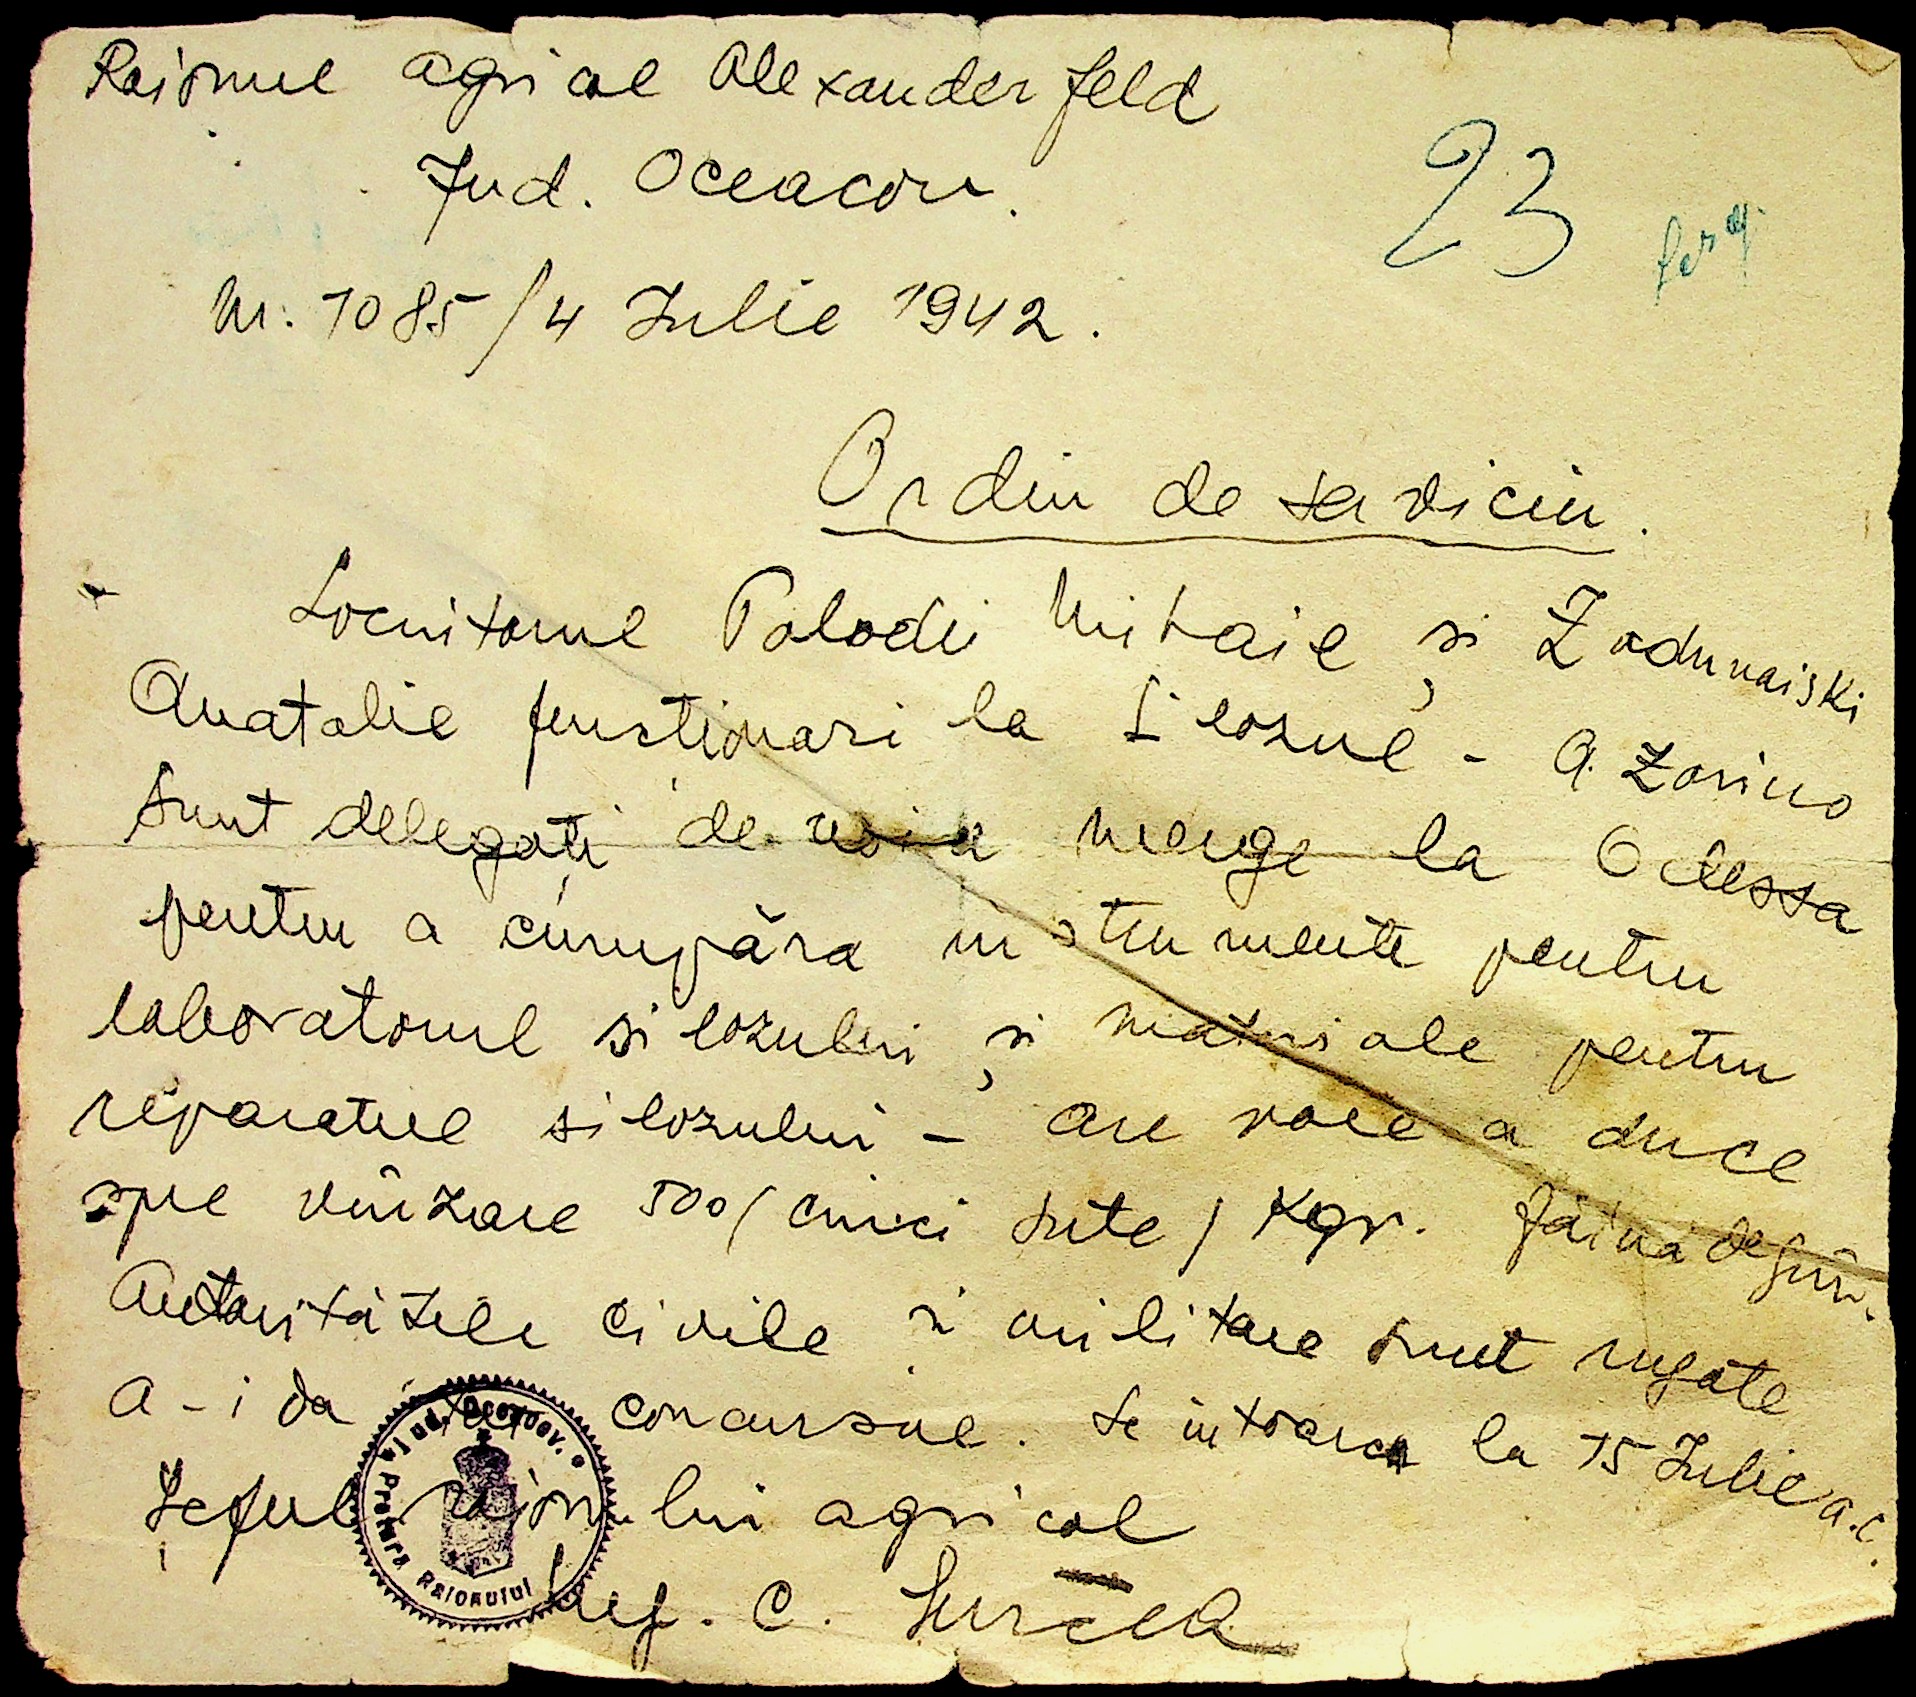 Raionul agricol Alexanderfeld
Jud. Oceacov.
23
Nr. 1085/4 Iulie 1942.
Ordin de serviciu.
Locuitorul Palodi Mihail și Zadunaiski
Anatolie funcționari la Silozul - A. Zarino
sunt delegați de noi a merge la Odessa
pentru a cumpăra instrumente pentru
laboratorul silozului și materiale pentru
reparatul silozului - are voie a duce
spre vînzare 500/cinci sute/Kgr. făină de grîu.
Autoritățile civile și militare sunt rugate
a-i da tot concursul. Se întoarce la 15 Iulie a.c.
Șeful raionului agricol
Ing. C. Surcea
Jud. Oceacov. * Pretura Raionului